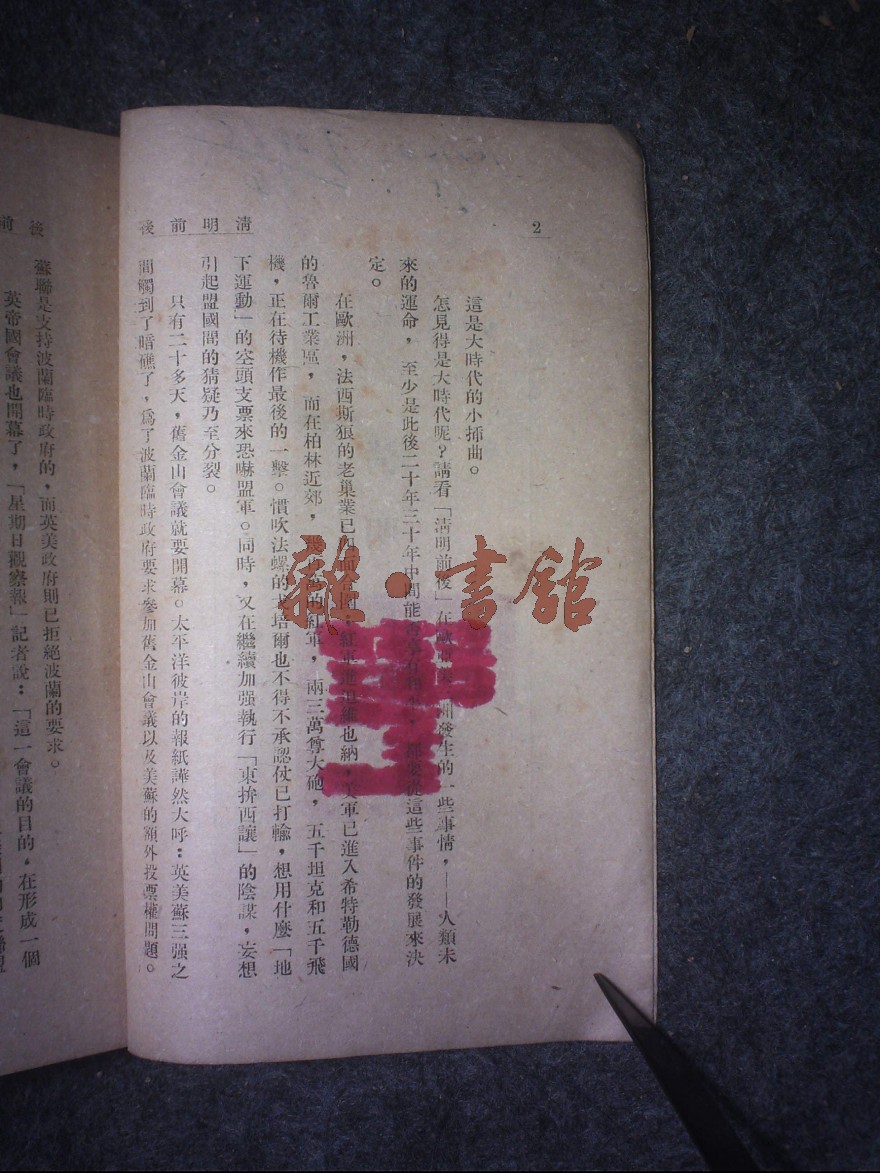 2
這是大時代的小揷曲。
怎見得是大時代呢？請看「淸明前後」在歐 洲發生的一些事情，——人類未
來的運命，至少是此後二十年三十年中間能 這些事件的發展來決
定。
在歐洲，法西斯狼的老巢業已四面 紅軍 維也納，美軍已進入希特勒德國
的魯爾工業區，而在柏林近郊，幾 的紅軍，兩三萬尊大砲，五千坦克和五千飛
機，正在待機作最後的一擊。慣吹法螺的戈培爾也不得不承認仗已打輸，想用什麼「地
下運動」的空頭支票來恐嚇盟軍。同時，又在繼續加强執行「東拚西讓」的陰謀，妄想
引起盟國間的猜疑乃至分裂。
只有二十多天，舊金山會議就要開幕。太平洋彼岸的報紙譁然大呼：英美蘇三强之
間觸到了暗礁了，爲了波蘭臨時政府要求參加舊金山會議以及美蘇的額外投票權問題。
淸明前後
蘇聯是支持波蘭臨時政府的，而英美政府則已拒絕波蘭的要求。
英帝國會議也開幕了，「星期日觀察報」記者說：「這一會議的目的，在形成一個
前後
雜·書館